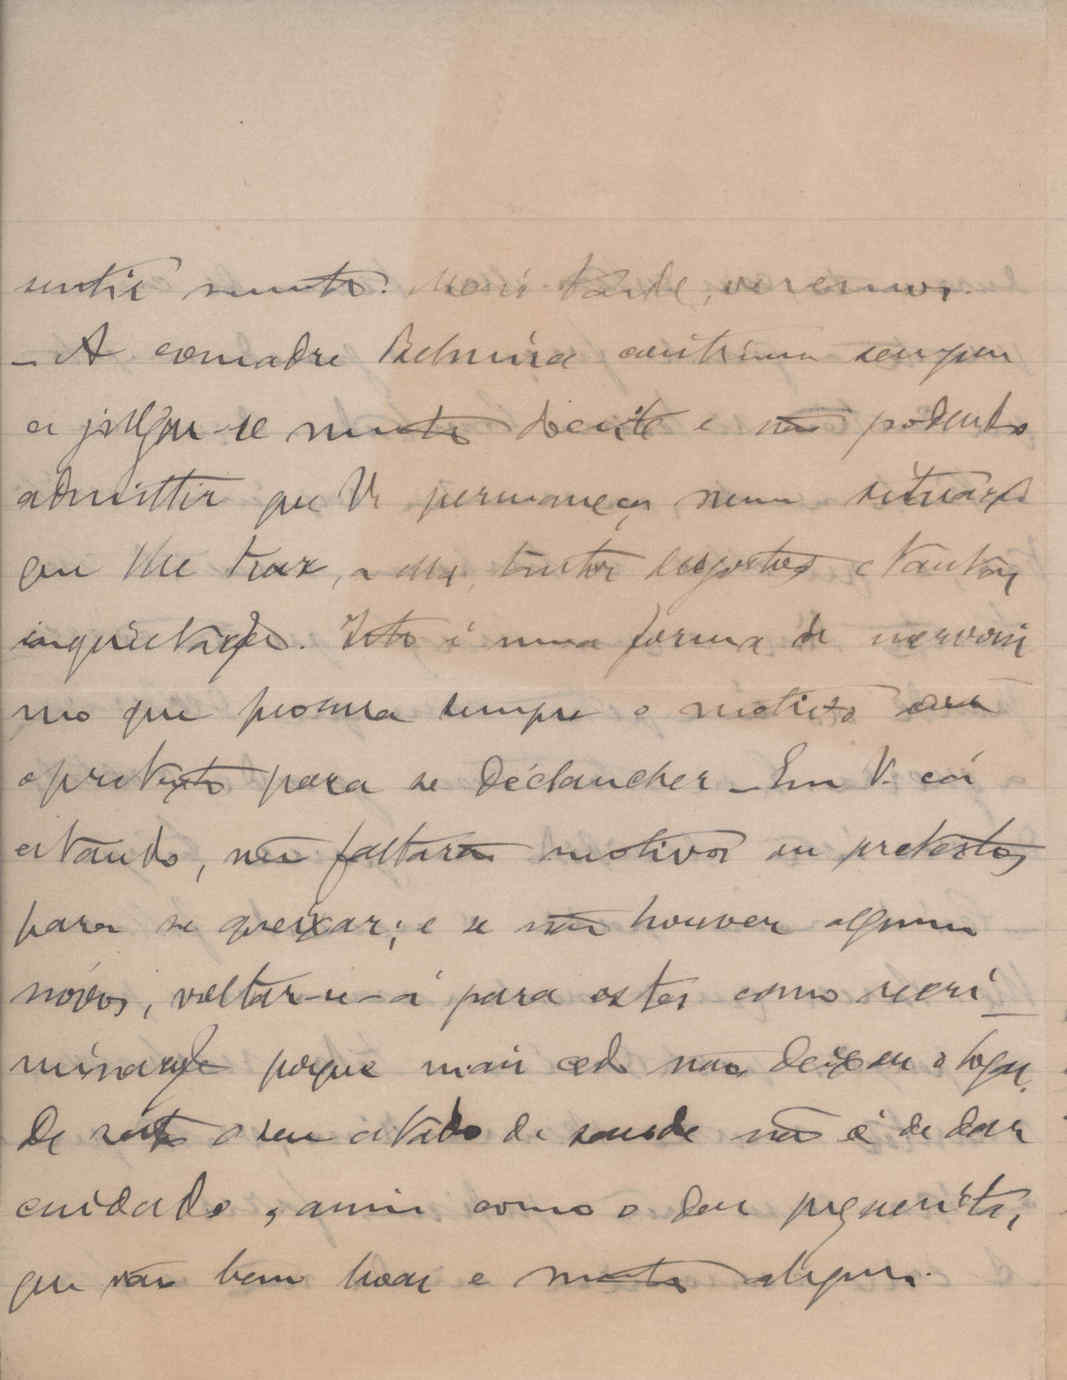 sentir muito. Mais tarde, veremos.
- A comadre Belmira continua sempre
a julgar-se muito doente e não podendo
admittir que V. permaneça numa situação
que lhe traz, a ella, tantos desgostos e tantas
inquietações. Isto é uma forma de nervosis
mo que procura sempre o motivo ou
o pretexto para se déclancher - Em V. cá
estando, não faltarão motivos ou pretextos
para se queixar; e se não houver alguns
nóvos, voltar-se-á para estes como recri
minação porque mais cedo não deixou o logar.
De resto o seu estado de saude não é de dar
cuidado, assim como o das pequenitas,
que vão bem boas e muito alegres.